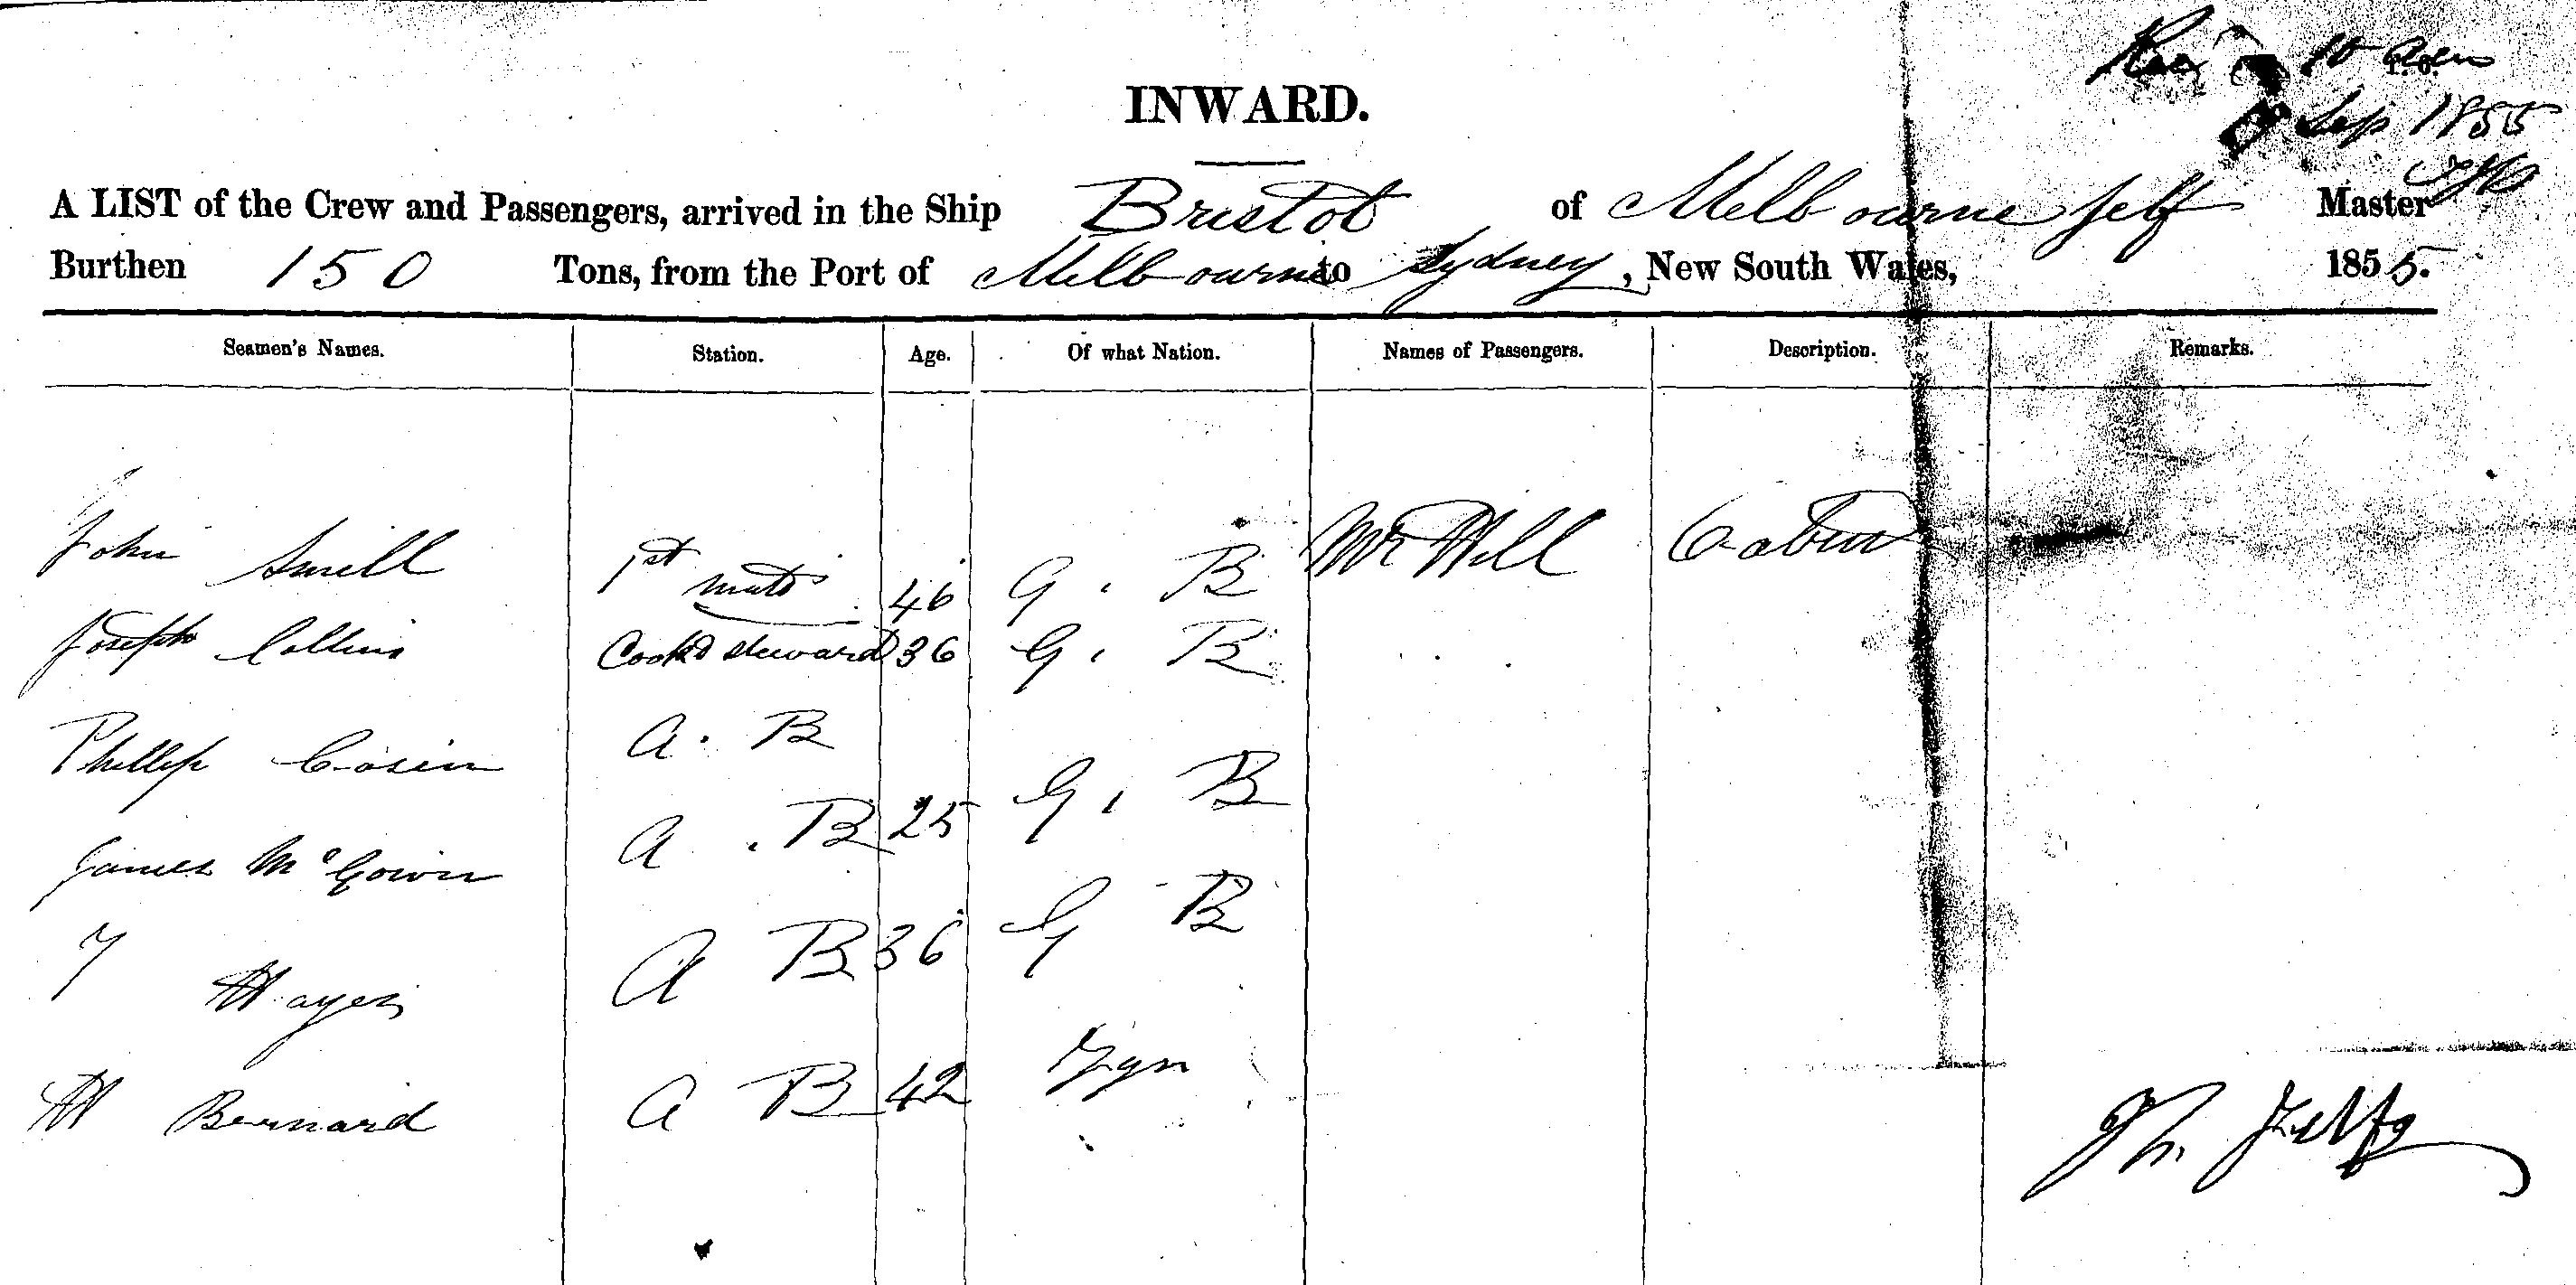 10 am
Sep 1855
INWARD.
A LIST of the Crew and Passengers, arrived in the Ship Bristol of Melbourne Self Master
Burthen 150 Tons, from the Port of Melbourne to Sydney, New South Wales, 1855.
Seamen's Names. Station. Age. Of what Nation. Names of Passengers. Description. Remarks.
John 1st mate 46 G. B Mr Hill Cabin
Joseph Collins Cook & Steward 36 G. B
Phillip A. B G. B
James McGowen A. B 25 G B
Hayes A B 36
H Bernard A B 42